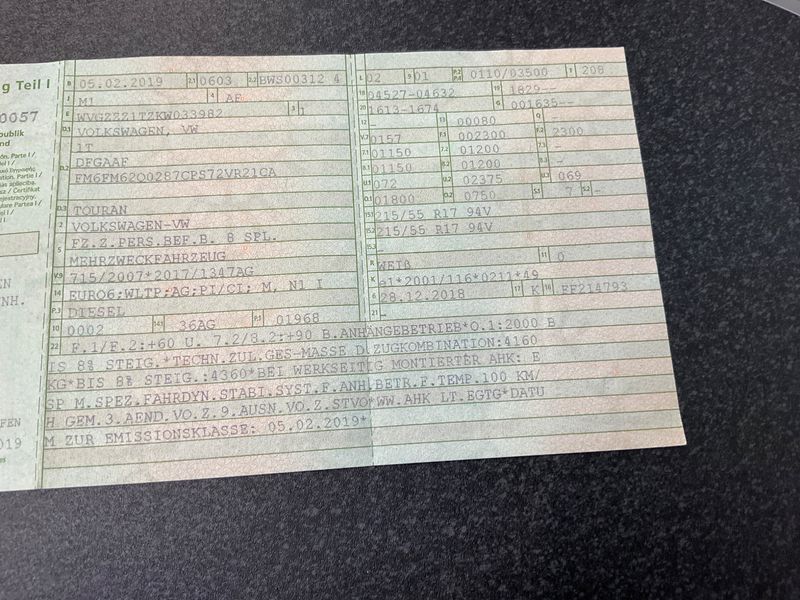 g Teil I
0057
publik
nd
EN
NH.
FEN
019
B 05.02.2019 2.1 0603 2.2 BWS00312 4
J M1 4 AF
E WVGZZZ1TZKW033982 3 1
D.1 VOLKSWAGEN, VW
1T
D.2 DFGAAF
FM6FM62Q0287CPS72VR21CA
D.3 TOURAN
2 VOLKSWAGEN-VW
5 FZ.Z.PERS.BEF.B. 8 SPL.
MEHRZWECKFAHRZEUG
V.9 715/2007*2017/1347AG
14 EURO6;WLTP;AG;PI/CI; M, N1 I
P.3 DIESEL
10 0002 14.1 36AG P.1 01968
L 02 9 01 P.2 P.4 0110/03500 T 208
18 04527-04632 19 1829--
20 1613-1674 G 001635--
12 - 13 00080 Q -
V.7 0157 F.1 002300 F.2 2300
7.1 01150 7.2 01200 7.3 -
8.1 01150 8.2 01200 8.3 -
U.1 072 U.2 02375 U.3 069
O.1 01800 O.2 0750 S.1 7 S.2 -
15.1 215/55 R17 94V
15.2 215/55 R17 94V
15.3 -
R WEIß 11 0
K e1*2001/116*0211*49
6 28.12.2018 17 K 16 FF214793
21 -
22 F.1/F.2:+60 U. 7.2/8.2:+90 B.ANHÄNGEBETRIEB*O.1:2000 B
IS 8% STEIG.*TECHN.ZUL.GES-MASSE D.ZUGKOMBINATION:4160
KG*BIS 8% STEIG.:4360*BEI WERKSEITIG MONTIERTER AHK: E
SP M.SPEZ.FAHRDYN.STABI.SYST.F.ANH.BETR.F.TEMP.100 KM/
H GEM.3.AEND.VO.Z.9.AUSN.VO.Z.STVO*WW.AHK LT.EGTG*DATU
M ZUR EMISSIONSKLASSE: 05.02.2019*